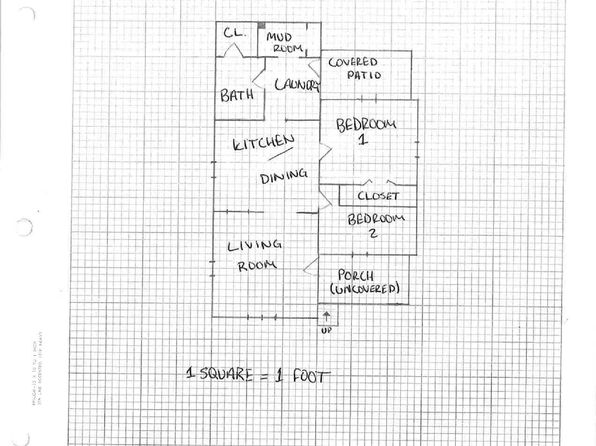 CL.
MUD
ROOM
COVERED
PATIO
LAUNDRY
BATH
BEDROOM
1
KITCHEN
DINING
CLOSET
BEDROOM
2
LIVING
ROOM
PORCH
(UNCOVERED)
UP
1 SQUARE = 1 FOOT